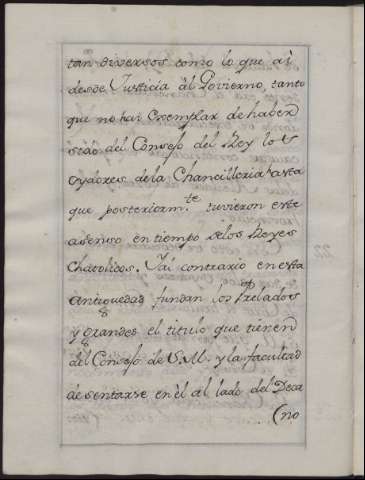 tan diversos como lo que ai
desde Justicia âl Govierno, tanto
que no hai exemplar de haber
sido del Consejo del Rey los
oydores de la Chancilleria hasta
que posteriorm.te tuvieron este
asenso en tiempo de los Reyes
Chatolicos. Yal contrario en esta
antiguedad fundan los Prelados
y grandes el titulo que tienen
del Consejo de V.M. y la facultad
de sentarse en èl al lado del Deca
(no